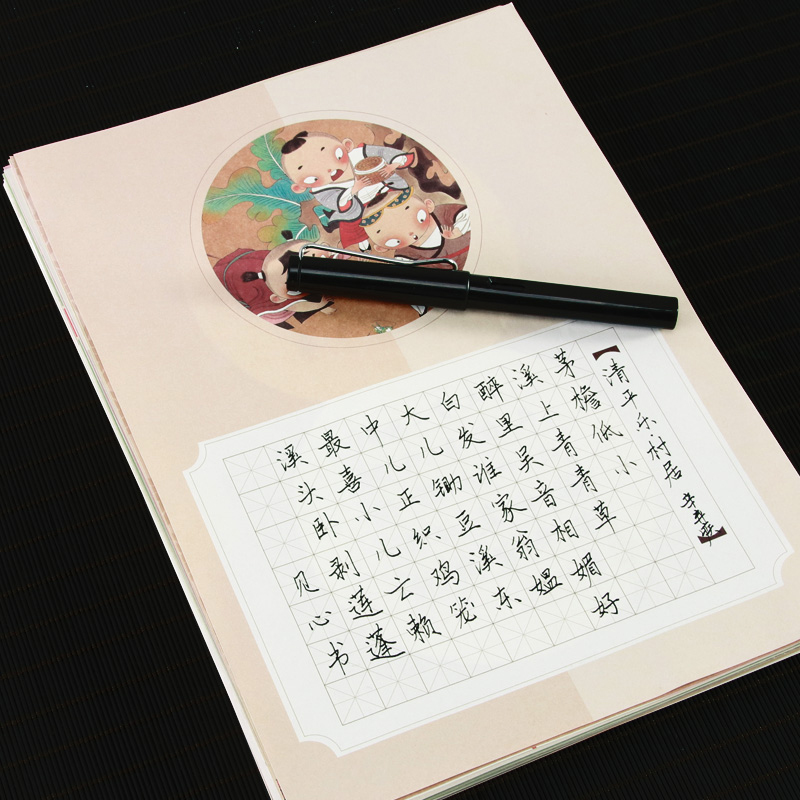 【清平乐·村居 辛弃疾】
茅檐低小
溪上青青草
醉里吴音相媚好
白发谁家翁媪
大儿锄豆溪东
中儿正织鸡笼
最喜小儿亡赖
溪头卧剥莲蓬
见心书